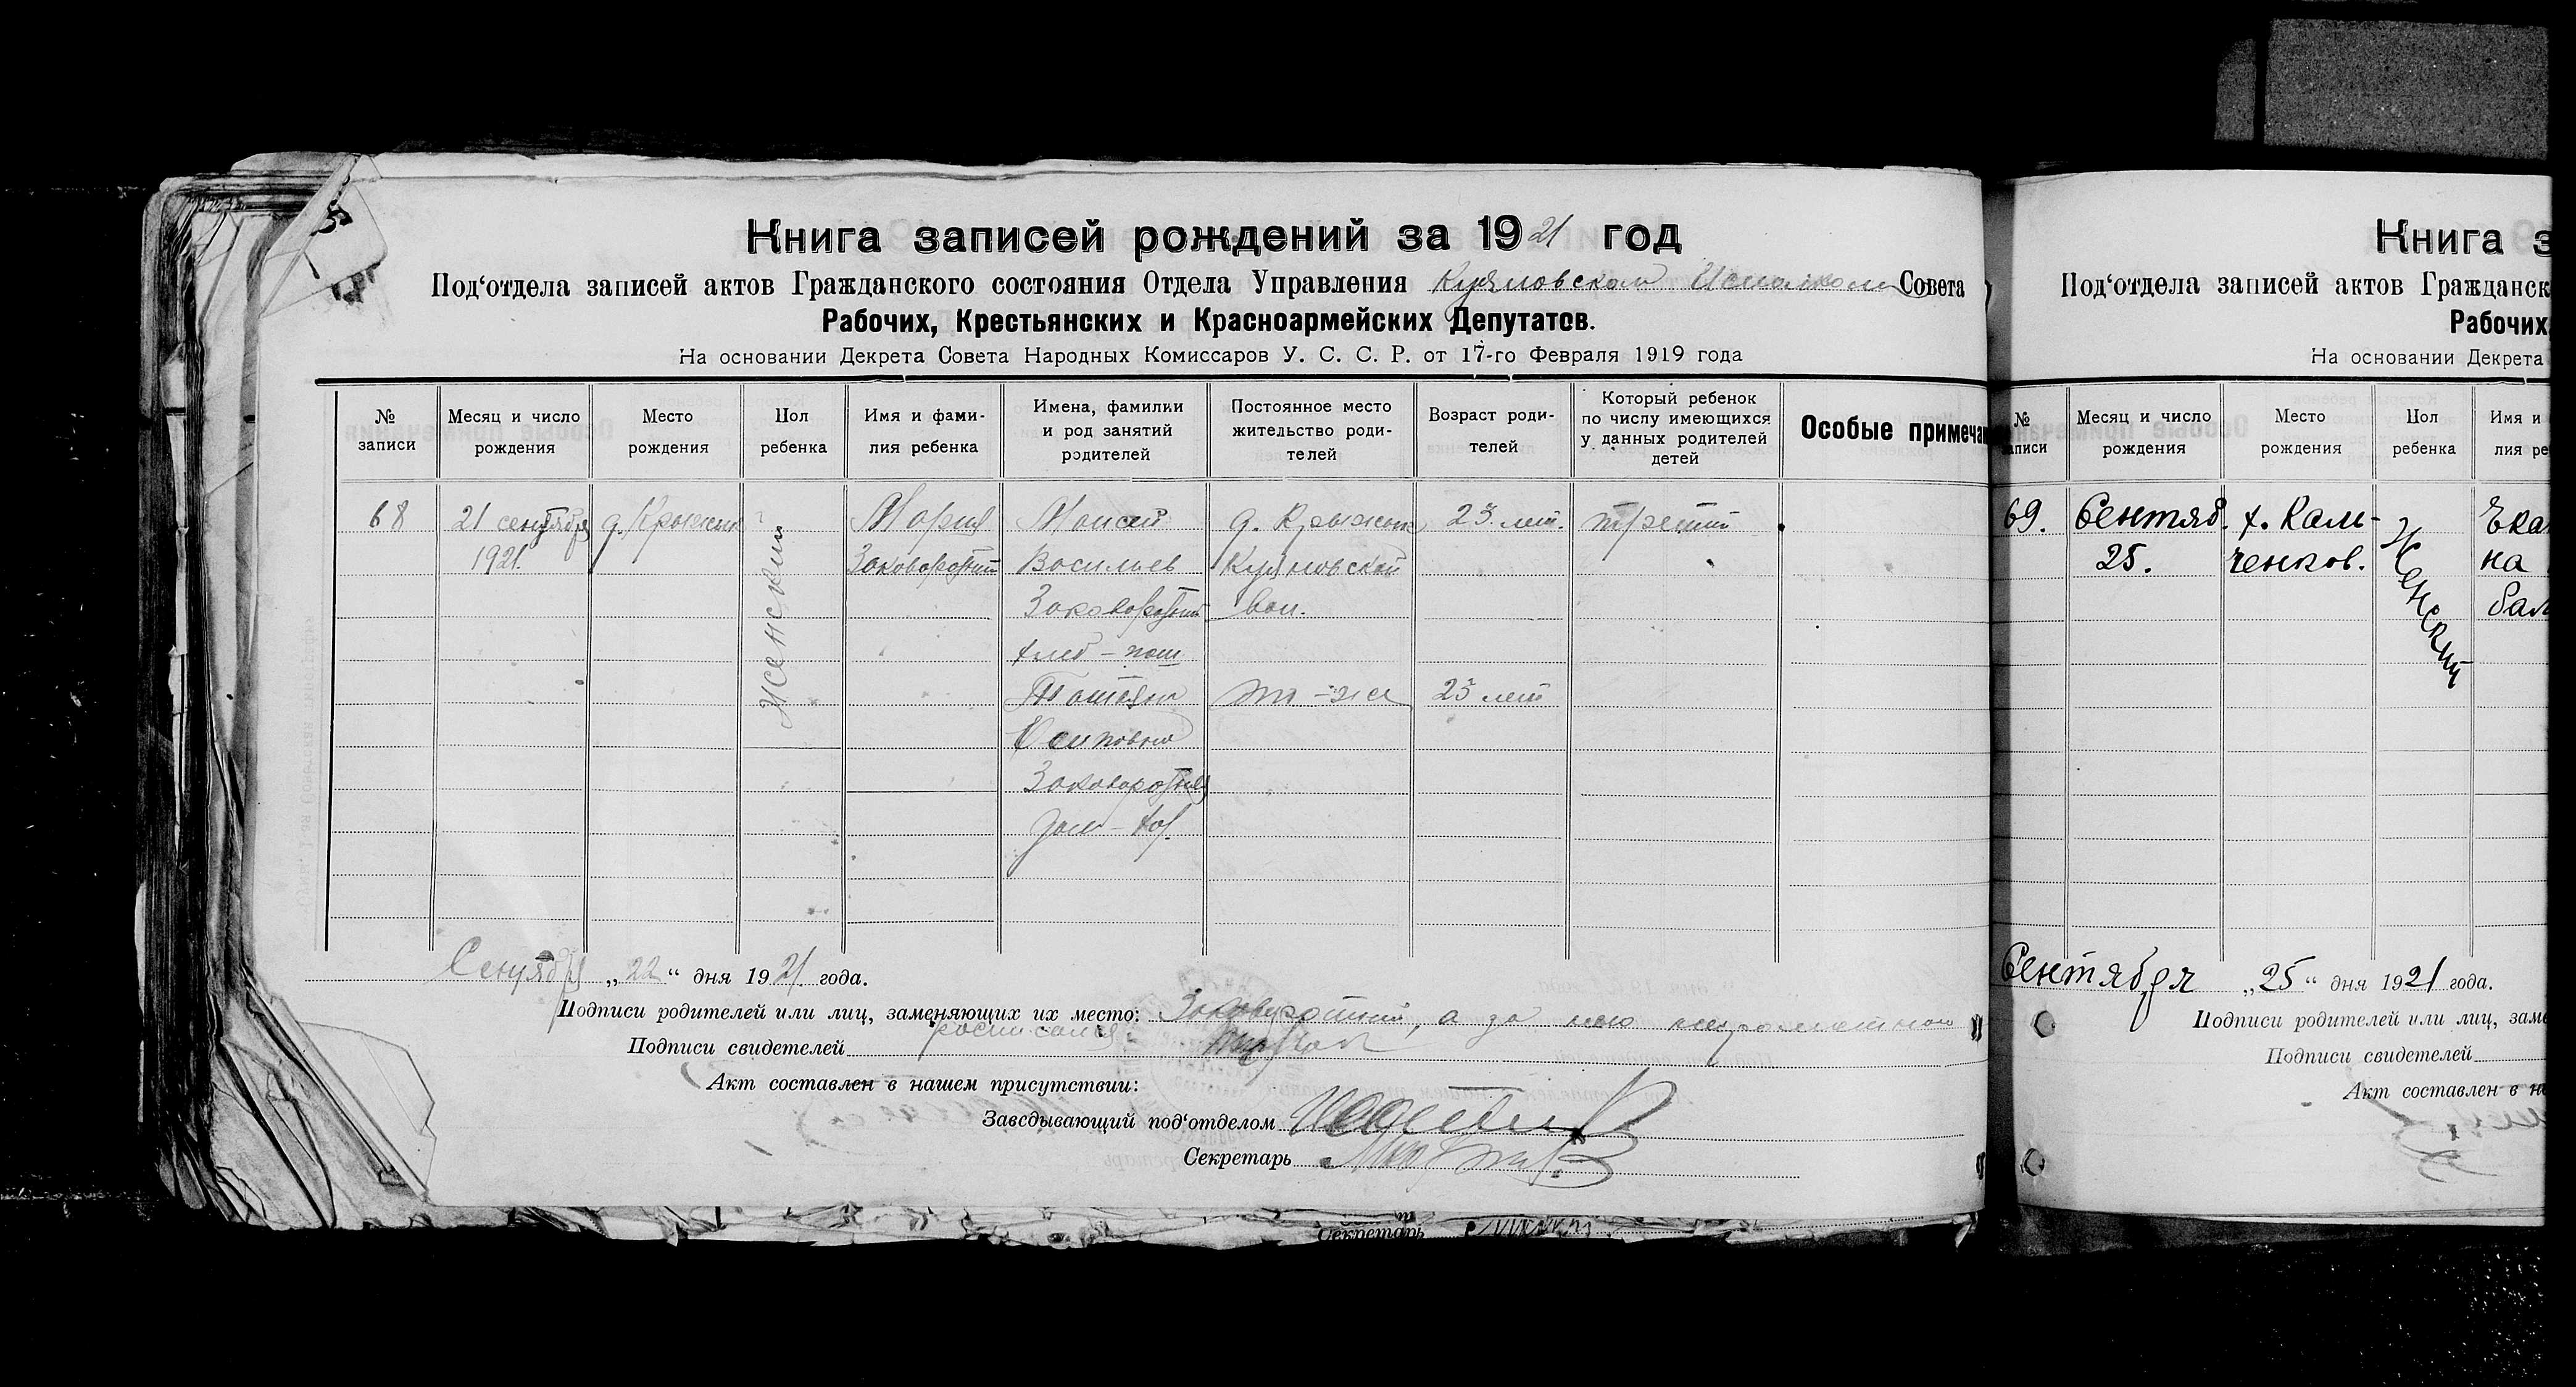 Книга записей рождений за 1921 год
Под‘отдела записей актов Гражданского состояния Отдела Управления Совета
Рабочих, Крестьянских и Красноармейских Депутатов.
На основании Декрета Совета Народных Комиссаров У. С. С. Р. от 17-го Февраля 1919 года
№ записи
Месяц и число рождения
Место рождения
Пол ребенка
Имя и фами-
лия ребенка
Имена, фамилии
и род занятий
родителей
Постоянное место
жительство роди-
телей
Возраст роди-
телей
Который ребенок
по числу имеющихся
у данных родителей
детей
Особые примечан
68
21 сентября
1921.
д.
Женский
Мария
Заковоротний
Моисей
Васильев
Заковоротний
хлеб-паш
Татьяна
Осиповна
Заковоротняя
дом-хоз.
д.
вол.
та-же
23 лет.
23 лет
третий
Сентября „22“ дня 1921 года.
Подписи родителей или лиц, заменяющих их место: Заковоротний, а за нею неграмотною
росписался
Подписи свидетелей
Акт составлен в нашем присутствии:
Заведывающий под‘отделом
Секретарь
Секретарь
Книга з
Под‘отдела записей актов Гражданск
Рабочих,
На основании Декрета
№ записи
Месяц и число рождения
Место рождения
Пол ребенка
Имя и
лия ре
69.
Сентяб.
25.
х. Каль-
ченков.
Женский
Ека
на
бал
Сентября „25“ дня 1921 года.
Подписи родителей или лиц, заме
Подписи свидетелей
Акт составлен в на